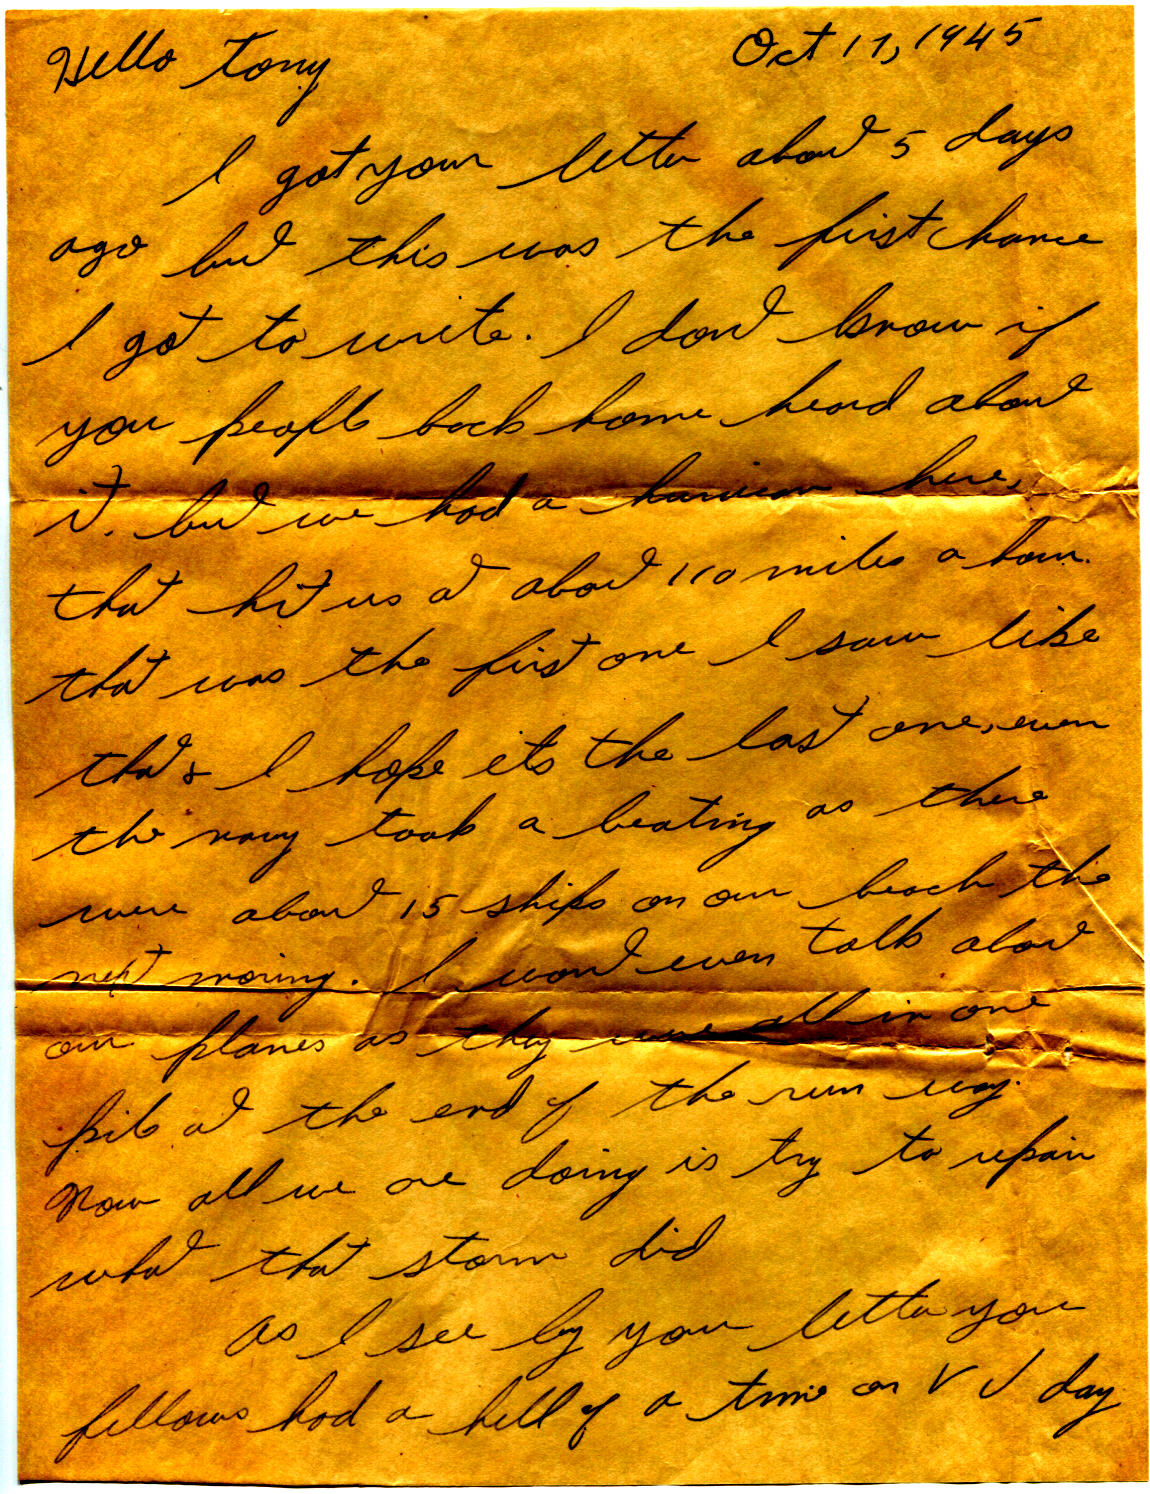 Hello Tony
Oct 17, 1945
I got your letter about 5 days
ago but this was the first chance
I got to write. I don't know if
you people back home heard about
it, but we had a here,
that hit us at about 110 miles a hour.
that was the first one I saw like
that & I hope it's the last one, even
the navy took a beating as there
were about 15 ships on our beach the
next morning. I won't even talk about
our planes as they were all in one
pile at the end of the run way.
Now all we are doing is try to repair
what that storm did
as I see by your letter you
fellows had a hell of a time on V J day